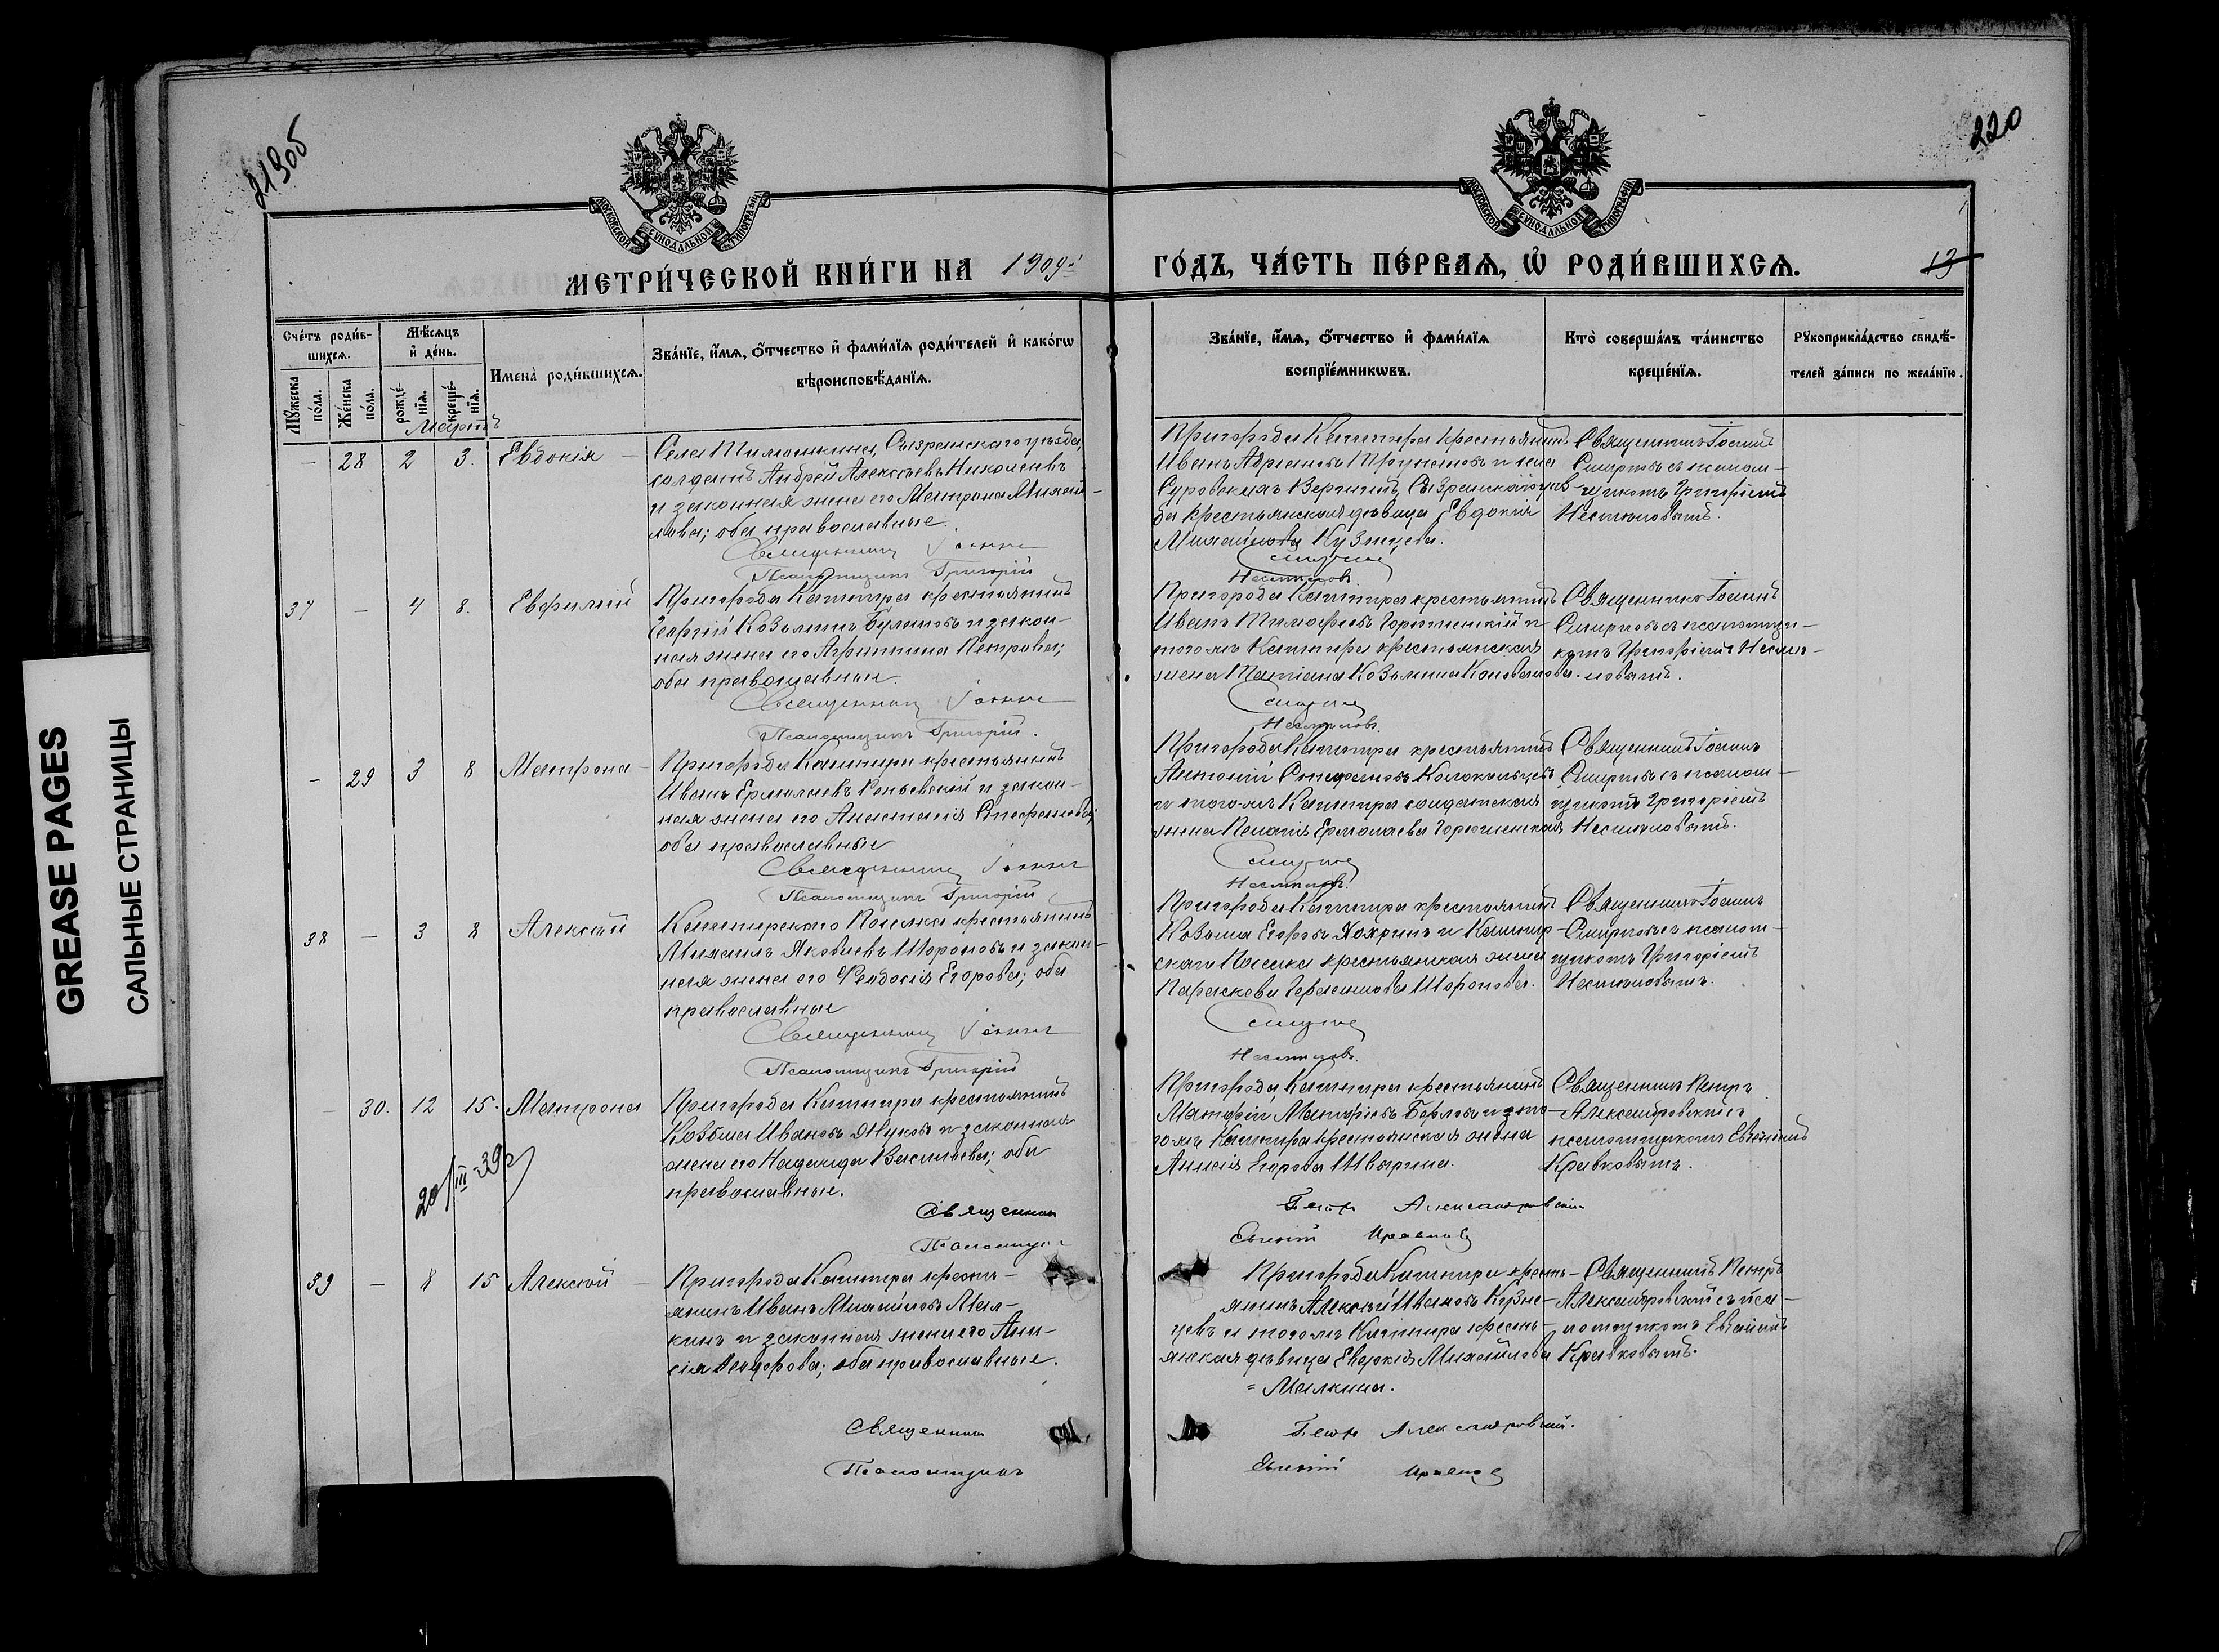 219об
220
МОСКОВСКОЙ СѴНОДАЛЬНОЙ ТИПОГРАФІИ
МОСКОВСКОЙ СѴНОДАЛЬНОЙ ТИПОГРАФІИ
МЕТРИ́ЧЕСКОЙ КНИ́ГИ НА 1909й
ГО́ДЪ, ЧА́СТЬ ПЕ́РВАѦ, Ѡ РОДИ́ВШИХСѦ.
13
Сче́тъ роди́в-
шихсѧ.
Мѣ́сѧцъ
и҆ де́нь.
Имена̀ роди́вшихсѧ.
Зва́нїе, и҆́мѧ, ѻ҆́тчество и҆ фами́лїѧ роди́телей и҆ како́гѡ
вѣроисповѣ́данїѧ.
Мꙋ́жеска
по́ла.
Же́нска
по́ла.
рожде́-
нїѧ.
креще́-
нїѧ.
Зва́нїе, и҆́мѧ, ѻ҆́тчество и҆ фами́лїѧ
воспрїе́мникѡвъ.
Кто̀ соверша́лъ та́инство
креще́нїѧ.
Рꙋкоприкла́дство свидѣ́-
телей за́писи по жела́нїю.
Мартъ
— 28 2 3. Евдокія —
Села Тимошкина, Сызранскаго уѣзда,
солдатъ Андрей Алексѣевъ Николаевъ
и законная жена его Матрона Михай-
лова; оба православные.
Священникъ Іоаннъ
Псаломщикъ Григорій
Пригорода Кашпира крестьянинъ
Иванъ Адріановъ и села
Евдокія
Михайлова Кузнецова.
Смирновъ
Священникъ Іоаннъ
Смирновъ съ псалом-
щикомъ Григоріемъ
37 — 4 8. Евфимій
Пригорода Кашпира крестьянинъ
Георгій Козьминъ и закон-
ная жена его Агриппина Петрова;
оба православные.
Священникъ Іоаннъ
Псаломщикъ Григорій.
Пригорода Кашпира крестьянинъ
Иванъ Тимофеевъ Горюшенскій и
того-жъ Кашпира крестьянская
жена Татіана Козьмина Коновалова.
Смирновъ
Священникъ Іоаннъ
Смирновъ съ псаломщи-
комъ Григоріемъ
— 29 3 8 Матрона —
Пригорода Кашпира крестьянинъ
Иванъ Ермолаевъ и закон-
ная жена его Анастасія Стефанова;
оба православные
Священникъ Іоаннъ
Псаломщикъ Григорій
Пригорода Кашпира крестьянинъ
Антоній Стефановъ Колокольцевъ
и того-жъ Кашпира солдатская
жена Пелагія Ермолаева Горюшенская
Смирновъ
Священникъ Іоаннъ
Смирновъ съ псалом-
щикомъ Григоріемъ
38 — 3 8 Алексѣй
Кашпирскаго Поселка крестьянинъ
Михаилъ Яковлевъ Шороновъ и закон-
ная жена его Феодосія Егорова; оба
православные
Священникъ Іоаннъ
Псаломщикъ Григорій
Пригорода Кашпира крестьянинъ
Козьма Егоровъ Хохринъ и Кашпир-
скаго Поселка крестьянская жена
Параскева Герасимова Шоронова.
Смирновъ
Священникъ Іоаннъ
Смирновъ съ псалом-
щикомъ Григоріемъ
— 30. 12 15. Матрона
20/III-39г
Пригорода Кашпира крестьянинъ
Козьма Ивановъ Жуковъ и законная
жена его Надежда Васильева; оба
православные.
Священникъ
Псаломщикъ
Пригорода Кашпира крестьянинъ
Матфей Матфеевъ и то-
го-жъ Кашпира крестьянская жена
Анисія Егорова Шварина.
Петръ Александровскій
Евгеній Кравковъ
Священникъ Петръ
Александровскій съ
псаломщикомъ Евгеніемъ
Кравковымъ.
39 — 8 15 Алексѣй —
Пригорода Кашпира кресть-
янинъ Иванъ Михайловъ Мал-
кинъ и законная жена его Ани-
сія Ѳеодорова; оба православные.
Священникъ
Псаломщикъ
Пригорода Кашпира кресть-
янинъ Алексѣй Ивановъ Кузне-
цевъ и того-жъ Кашпира кресть-
янская дѣвица Евдокія Михайлова
Малкина.
Петръ Александровскій.
Евгеній Кравковъ
Священникъ Петръ
Александровскій съ пса-
ломщикомъ Евгеніемъ
Кравковымъ.
GREASE PAGES
САЛЬНЫЕ СТРАНИЦЫ